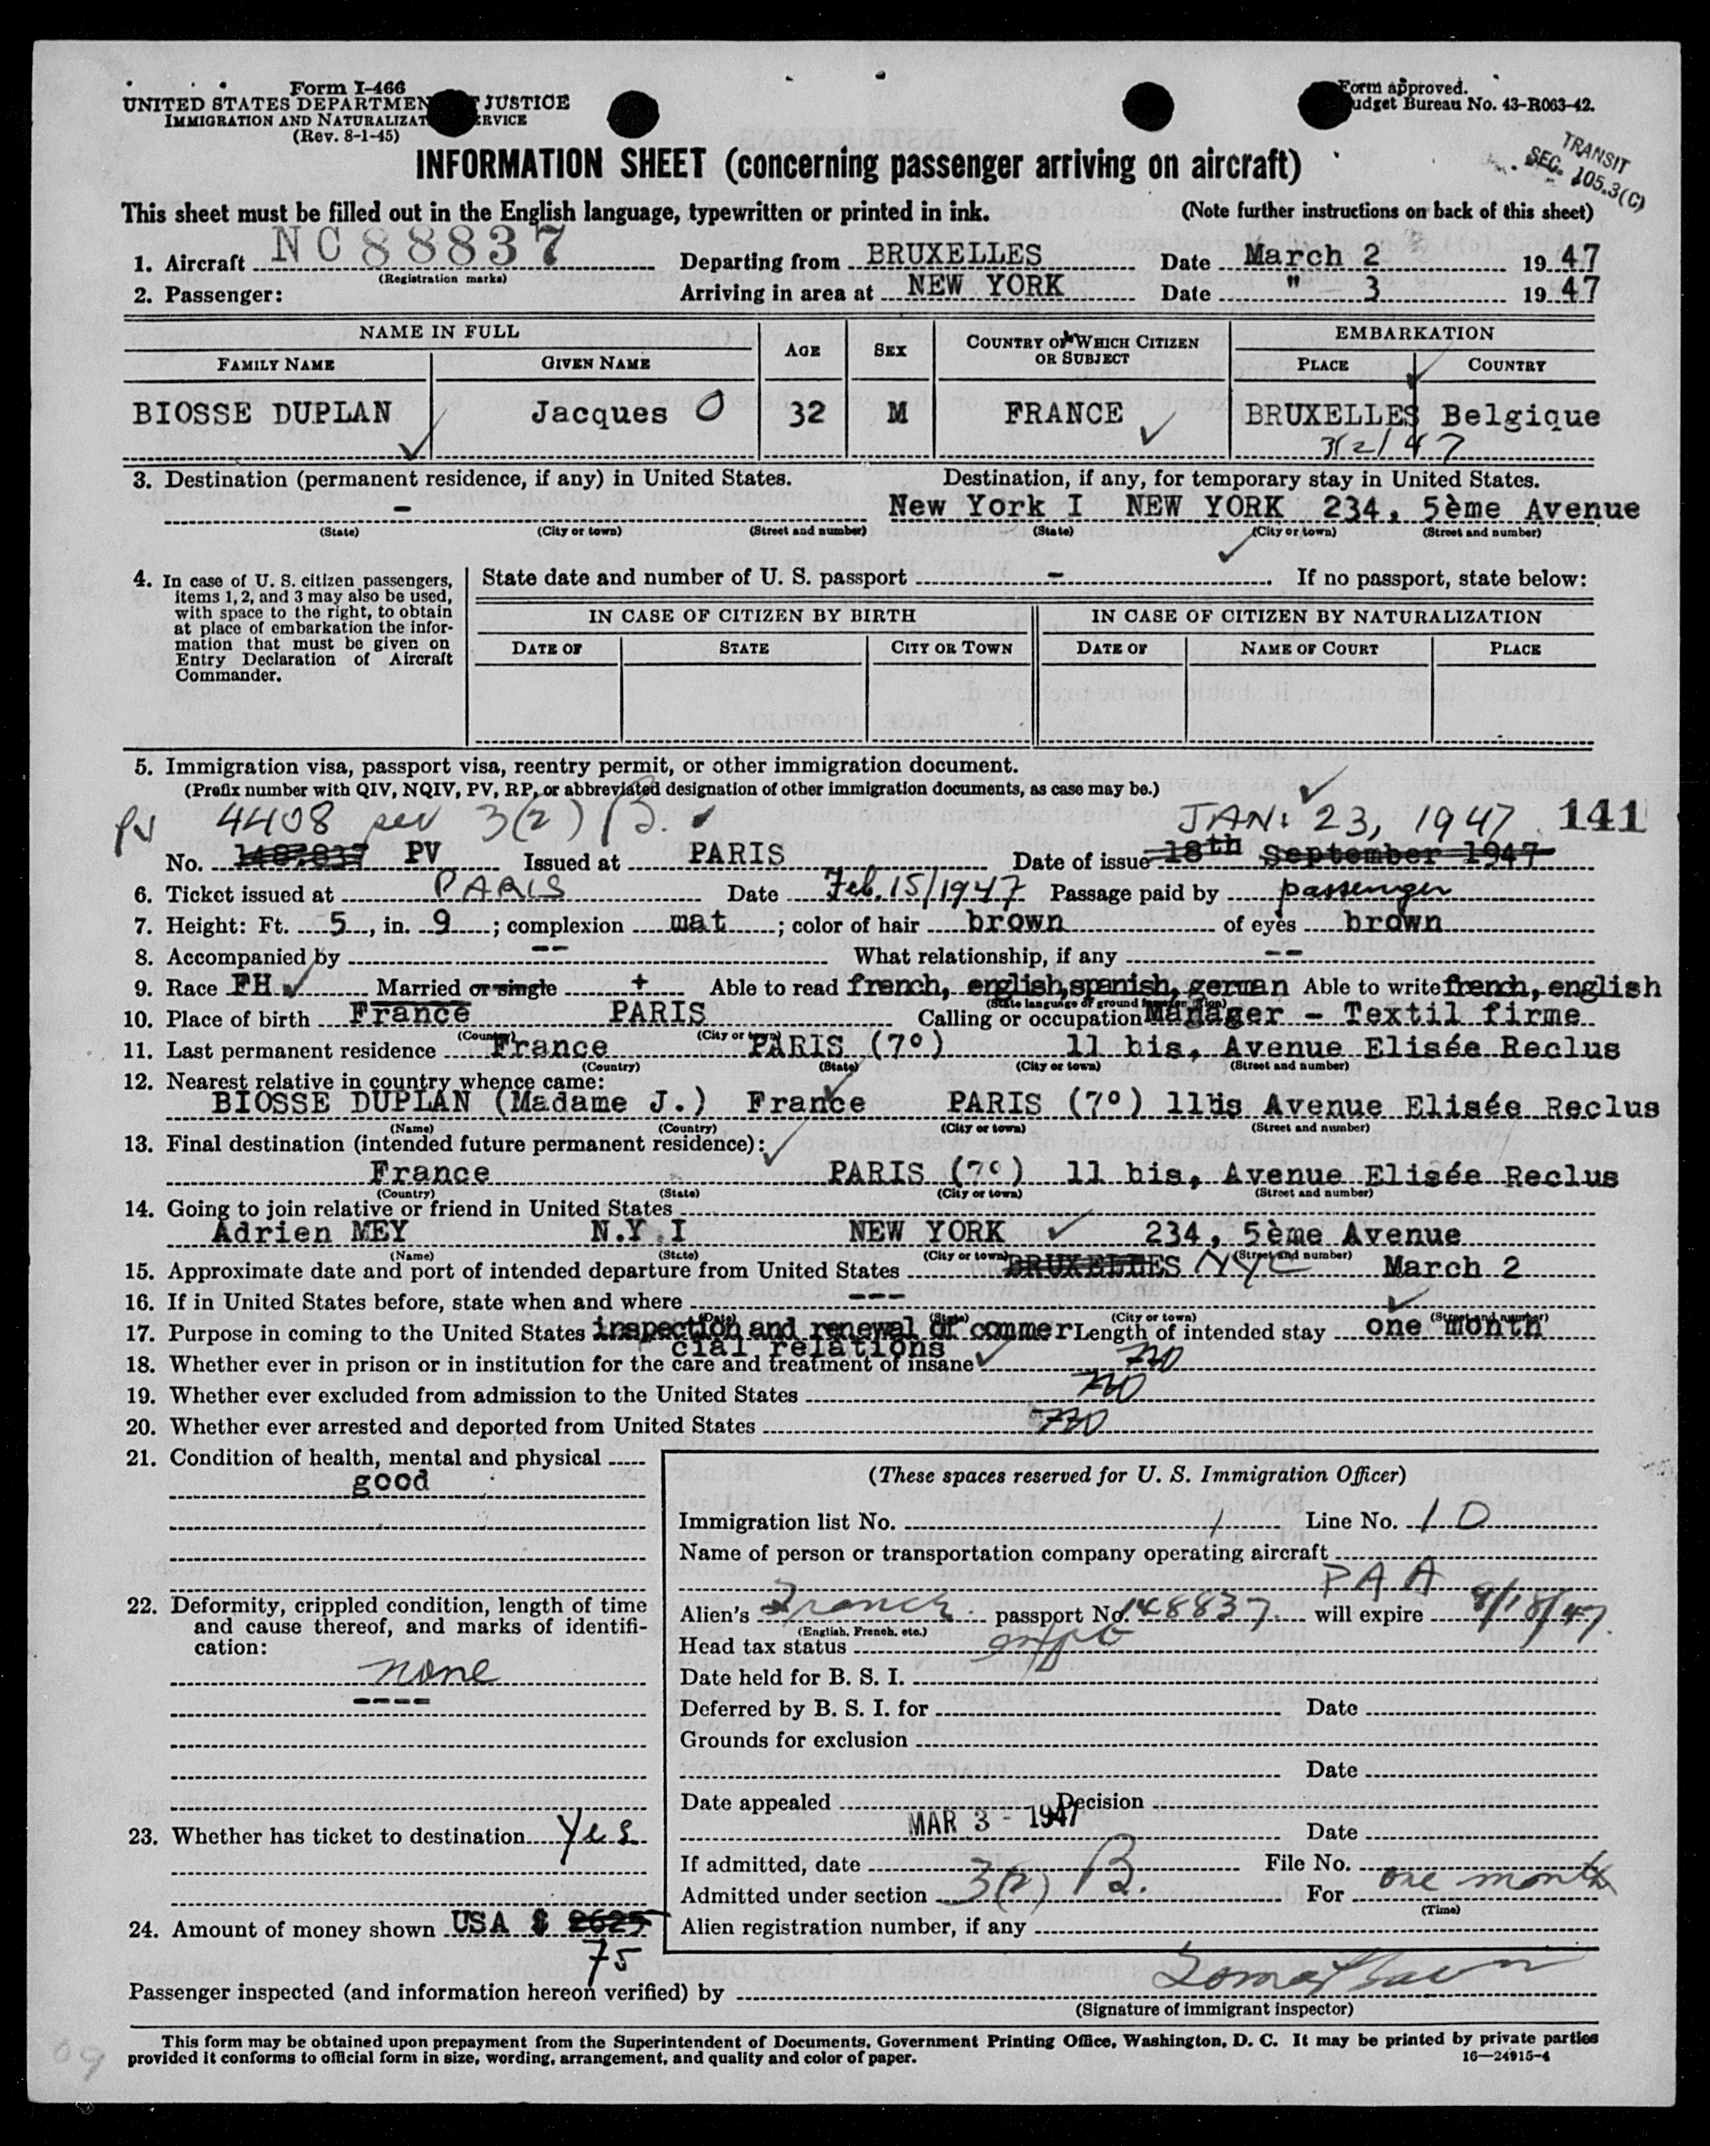 Form I-466
UNITED STATES DEPARTMENT JUSTICE
IMMIGRATION AND NATURALIZAT ERVICE
(Rev. 8-1-45)
Form approved.
udget Bureau No. 43-R063-42.
TRANSIT
SEC. 105.3(C)
INFORMATION SHEET (concerning passenger arriving on aircraft)
This sheet must be filled out in the English language, typewritten or printed in ink. (Note further instructions on back of this sheet)
1. Aircraft NC88837 Departing from BRUXELLES Date March 2 1947
(Registration marks)
2. Passenger: Arriving in area at NEW YORK Date " 3 1947
NAME IN FULL AGE SEX COUNTRY OF WHICH CITIZEN OR SUBJECT EMBARKATION
FAMILY NAME GIVEN NAME PLACE COUNTRY
BIOSSE DUPLAN Jacques O 32 M FRANCE BRUXELLES Belgique
3/2/47
3. Destination (permanent residence, if any) in United States. Destination, if any, for temporary stay in United States.
- New York I NEW YORK 234, 5ème Avenue
(State) (City or town) (Street and number) (State) (City or town) (Street and number)
4. In case of U. S. citizen passengers, items 1, 2, and 3 may also be used, with space to the right, to obtain at place of embarkation the information that must be given on Entry Declaration of Aircraft Commander.
State date and number of U. S. passport - If no passport, state below:
IN CASE OF CITIZEN BY BIRTH IN CASE OF CITIZEN BY NATURALIZATION
DATE OF STATE CITY OR TOWN DATE OF NAME OF COURT PLACE
5. Immigration visa, passport visa, reentry permit, or other immigration document.
(Prefix number with QIV, NQIV, PV, RP, or abbreviated designation of other immigration documents, as case may be.)
PV 4408 sec 3(2) B. JAN. 23, 1947 141
No. 148.837 PV Issued at PARIS Date of issue 18th September 1947
6. Ticket issued at PARIS Date Feb. 15/1947 Passage paid by passenger
7. Height: Ft. 5, in. 9; complexion mat; color of hair brown of eyes brown
8. Accompanied by -- What relationship, if any --
9. Race FH Married or single + Able to read french, english, spanish, german Able to write french, english
10. Place of birth France PARIS Calling or occupation Manager - Textil firme
(Country) (City or town)
11. Last permanent residence France PARIS (7°) 11 bis, Avenue Elisée Reclus
(Country) (State) (City or town) (Street and number)
12. Nearest relative in country whence came:
BIOSSE DUPLAN (Madame J.) France PARIS (7°) 11bis Avenue Elisée Reclus
(Name) (Country) (City or town) (Street and number)
13. Final destination (intended future permanent residence):
France PARIS (7°) 11 bis, Avenue Elisée Reclus
(Country) (State) (City or town) (Street and number)
14. Going to join relative or friend in United States
Adrien MEY N.Y.I NEW YORK 234, 5ème Avenue
(Name) (State) (City or town) (Street and number)
15. Approximate date and port of intended departure from United States BRUXELLES NYC March 2
16. If in United States before, state when and where ---
(Date) (State) (City or town) (Street and number)
17. Purpose in coming to the United States inspection and renewal of commer Length of intended stay one month
cial relations
18. Whether ever in prison or in institution for the care and treatment of insane no
19. Whether ever excluded from admission to the United States no
20. Whether ever arrested and deported from United States no
21. Condition of health, mental and physical
good
22. Deformity, crippled condition, length of time and cause thereof, and marks of identification:
none
----
23. Whether has ticket to destination Yes
24. Amount of money shown USA $ 2625
75
(These spaces reserved for U. S. Immigration Officer)
Immigration list No. 1 Line No. 10
Name of person or transportation company operating aircraft
PAA
Alien's French passport No. 148837 will expire 9/18/47.
(English, French, etc.)
Head tax status expt
Date held for B. S. I.
Deferred by B. S. I. for Date
Grounds for exclusion
Date
Date appealed Decision
MAR 3 - 1947
Date
If admitted, date File No.
Admitted under section 3(2) B. For one month
(Time)
Alien registration number, if any
Passenger inspected (and information hereon verified) by
(Signature of immigrant inspector)
This form may be obtained upon prepayment from the Superintendent of Documents, Government Printing Office, Washington, D. C. It may be printed by private parties
provided it conforms to official form in size, wording, arrangement, and quality and color of paper. 16—24915-4